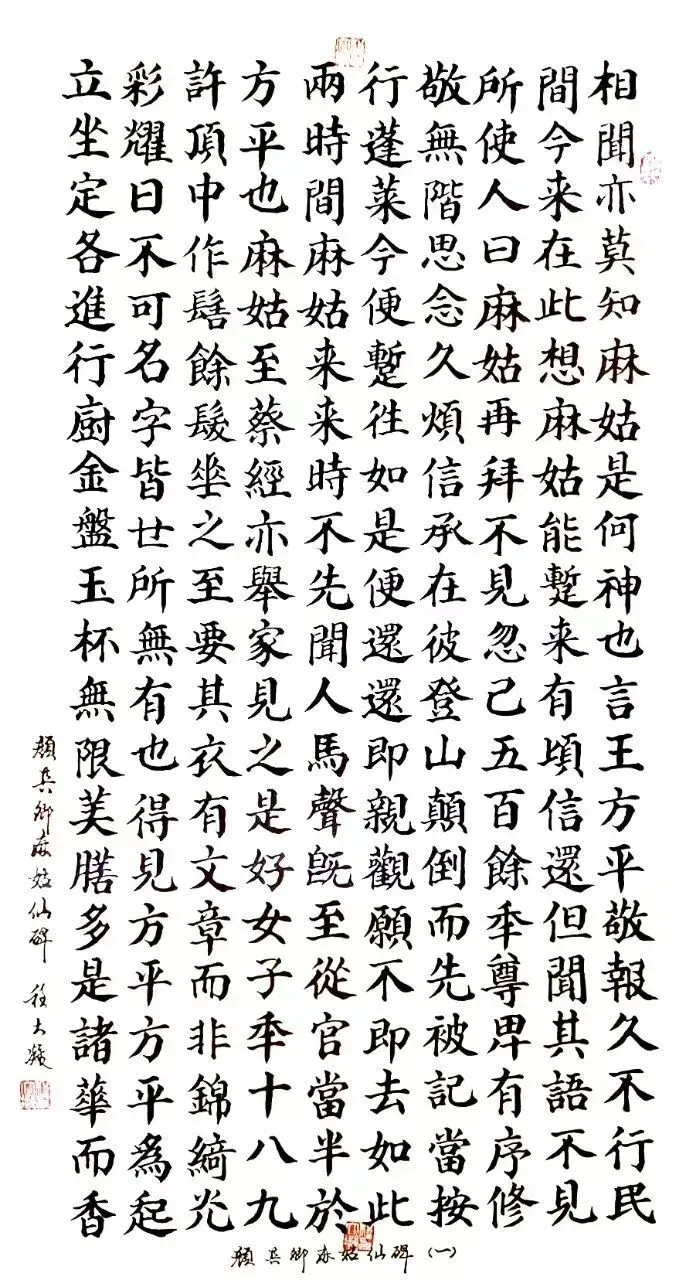 相聞亦莫知麻姑是何神也言王方平敬報久不行民
間今来在此想麻姑能蹔来有頃信還但聞其語不見
所使人曰麻姑再拜不見忽已五百餘年尊卑有序修
敬無階思念久煩信承在彼登山顛倒而先被記當按
行蓬莱今便蹔往如是便還還即親觀願不即去如此
兩時間麻姑来来時不先聞人馬聲既至從官當半於
方平也麻姑至蔡經亦舉家見之是好女子年十八九
許頂中作髻餘髮垂之至要其衣有文章而非錦綺光
彩耀日不可名字皆世所無有也得見方平方平為起
立坐定各進行厨金盤玉杯無限美膳多是諸華而香
顏真卿麻姑仙碑
顏真卿麻姑仙碑（一）